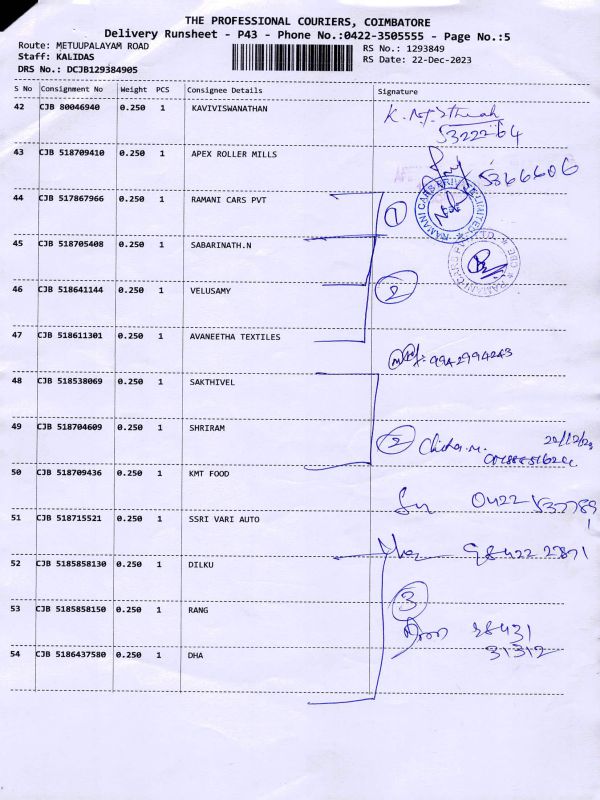 THE PROFESSIONAL COURIERS, COIMBATORE
Delivery Runsheet - P43 - Phone No.:0422-3505555 - Page No.:5
Route: METUUPALAYAM ROAD
RS No.: 1293849
Staff: KALIDAS
RS Date: 22-Dec-2023
DRS No.: DCJB129384905
S No Consignment No Weight PCS Consignee Details Signature
42 CJB 80046940 0.250 1 KAVIVISWANATHAN
532264
43 CJB 518709410 0.250 1 APEX ROLLER MILLS
5366606
44 CJB 517867966 0.250 1 RAMANI CARS PVT
1
RAMANI CARS PRIVATE LIMITED
45 CJB 518705408 0.250 1 SABARINATH.N
46 CJB 518641144 0.250 1 VELUSAMY
2
47 CJB 518611301 0.250 1 AVANEETHA TEXTILES
9942994243
48 CJB 518538069 0.250 1 SAKTHIVEL
49 CJB 518704609 0.250 1 SHRIRAM
2
50 CJB 518709436 0.250 1 KMT FOOD
0422
51 CJB 518715521 0.250 1 SSRI VARI AUTO
98422 27871
52 CJB 5185858130 0.250 1 DILKU
3
53 CJB 5185858150 0.250 1 RANG
98431
31312
54 CJB 5186437580 0.250 1 DHA